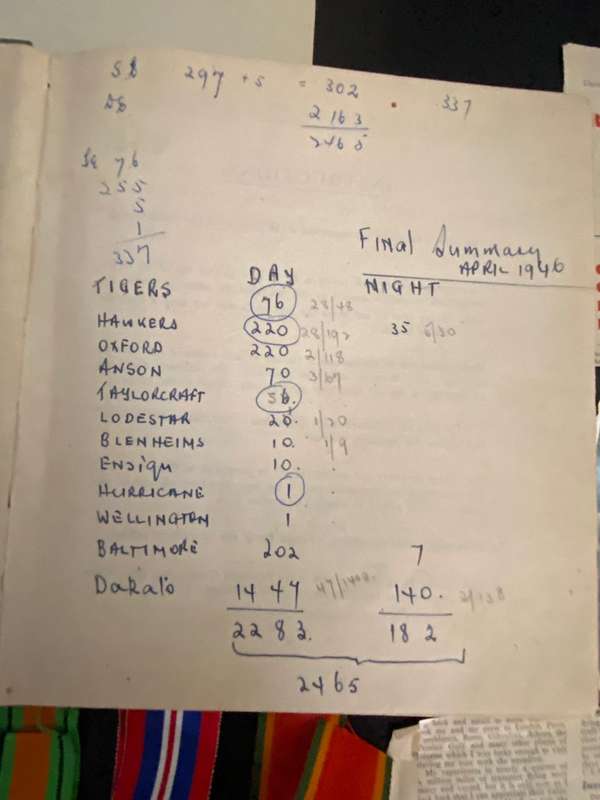 SE 297 + 5 = 302 337
DE 2163
2465
SE 76
255
5
1
337
Final Summary
APRIL 1946
DAY NIGHT
TIGERS 76 28/48
HAWKERS 220 28/192 35 5/30
OXFORD 220 2/118
ANSON 70 3/67
TAYLORCRAFT
LODESTAR 20. 1/20
BLENHEIMS 10. 1/9
ENSIGN 10.
HURRICANE 1
WELLINGTON 1
BALTIMORE 202 7
Dakato's 1447 47/1400. 140. 2/138
2283. 182
2465